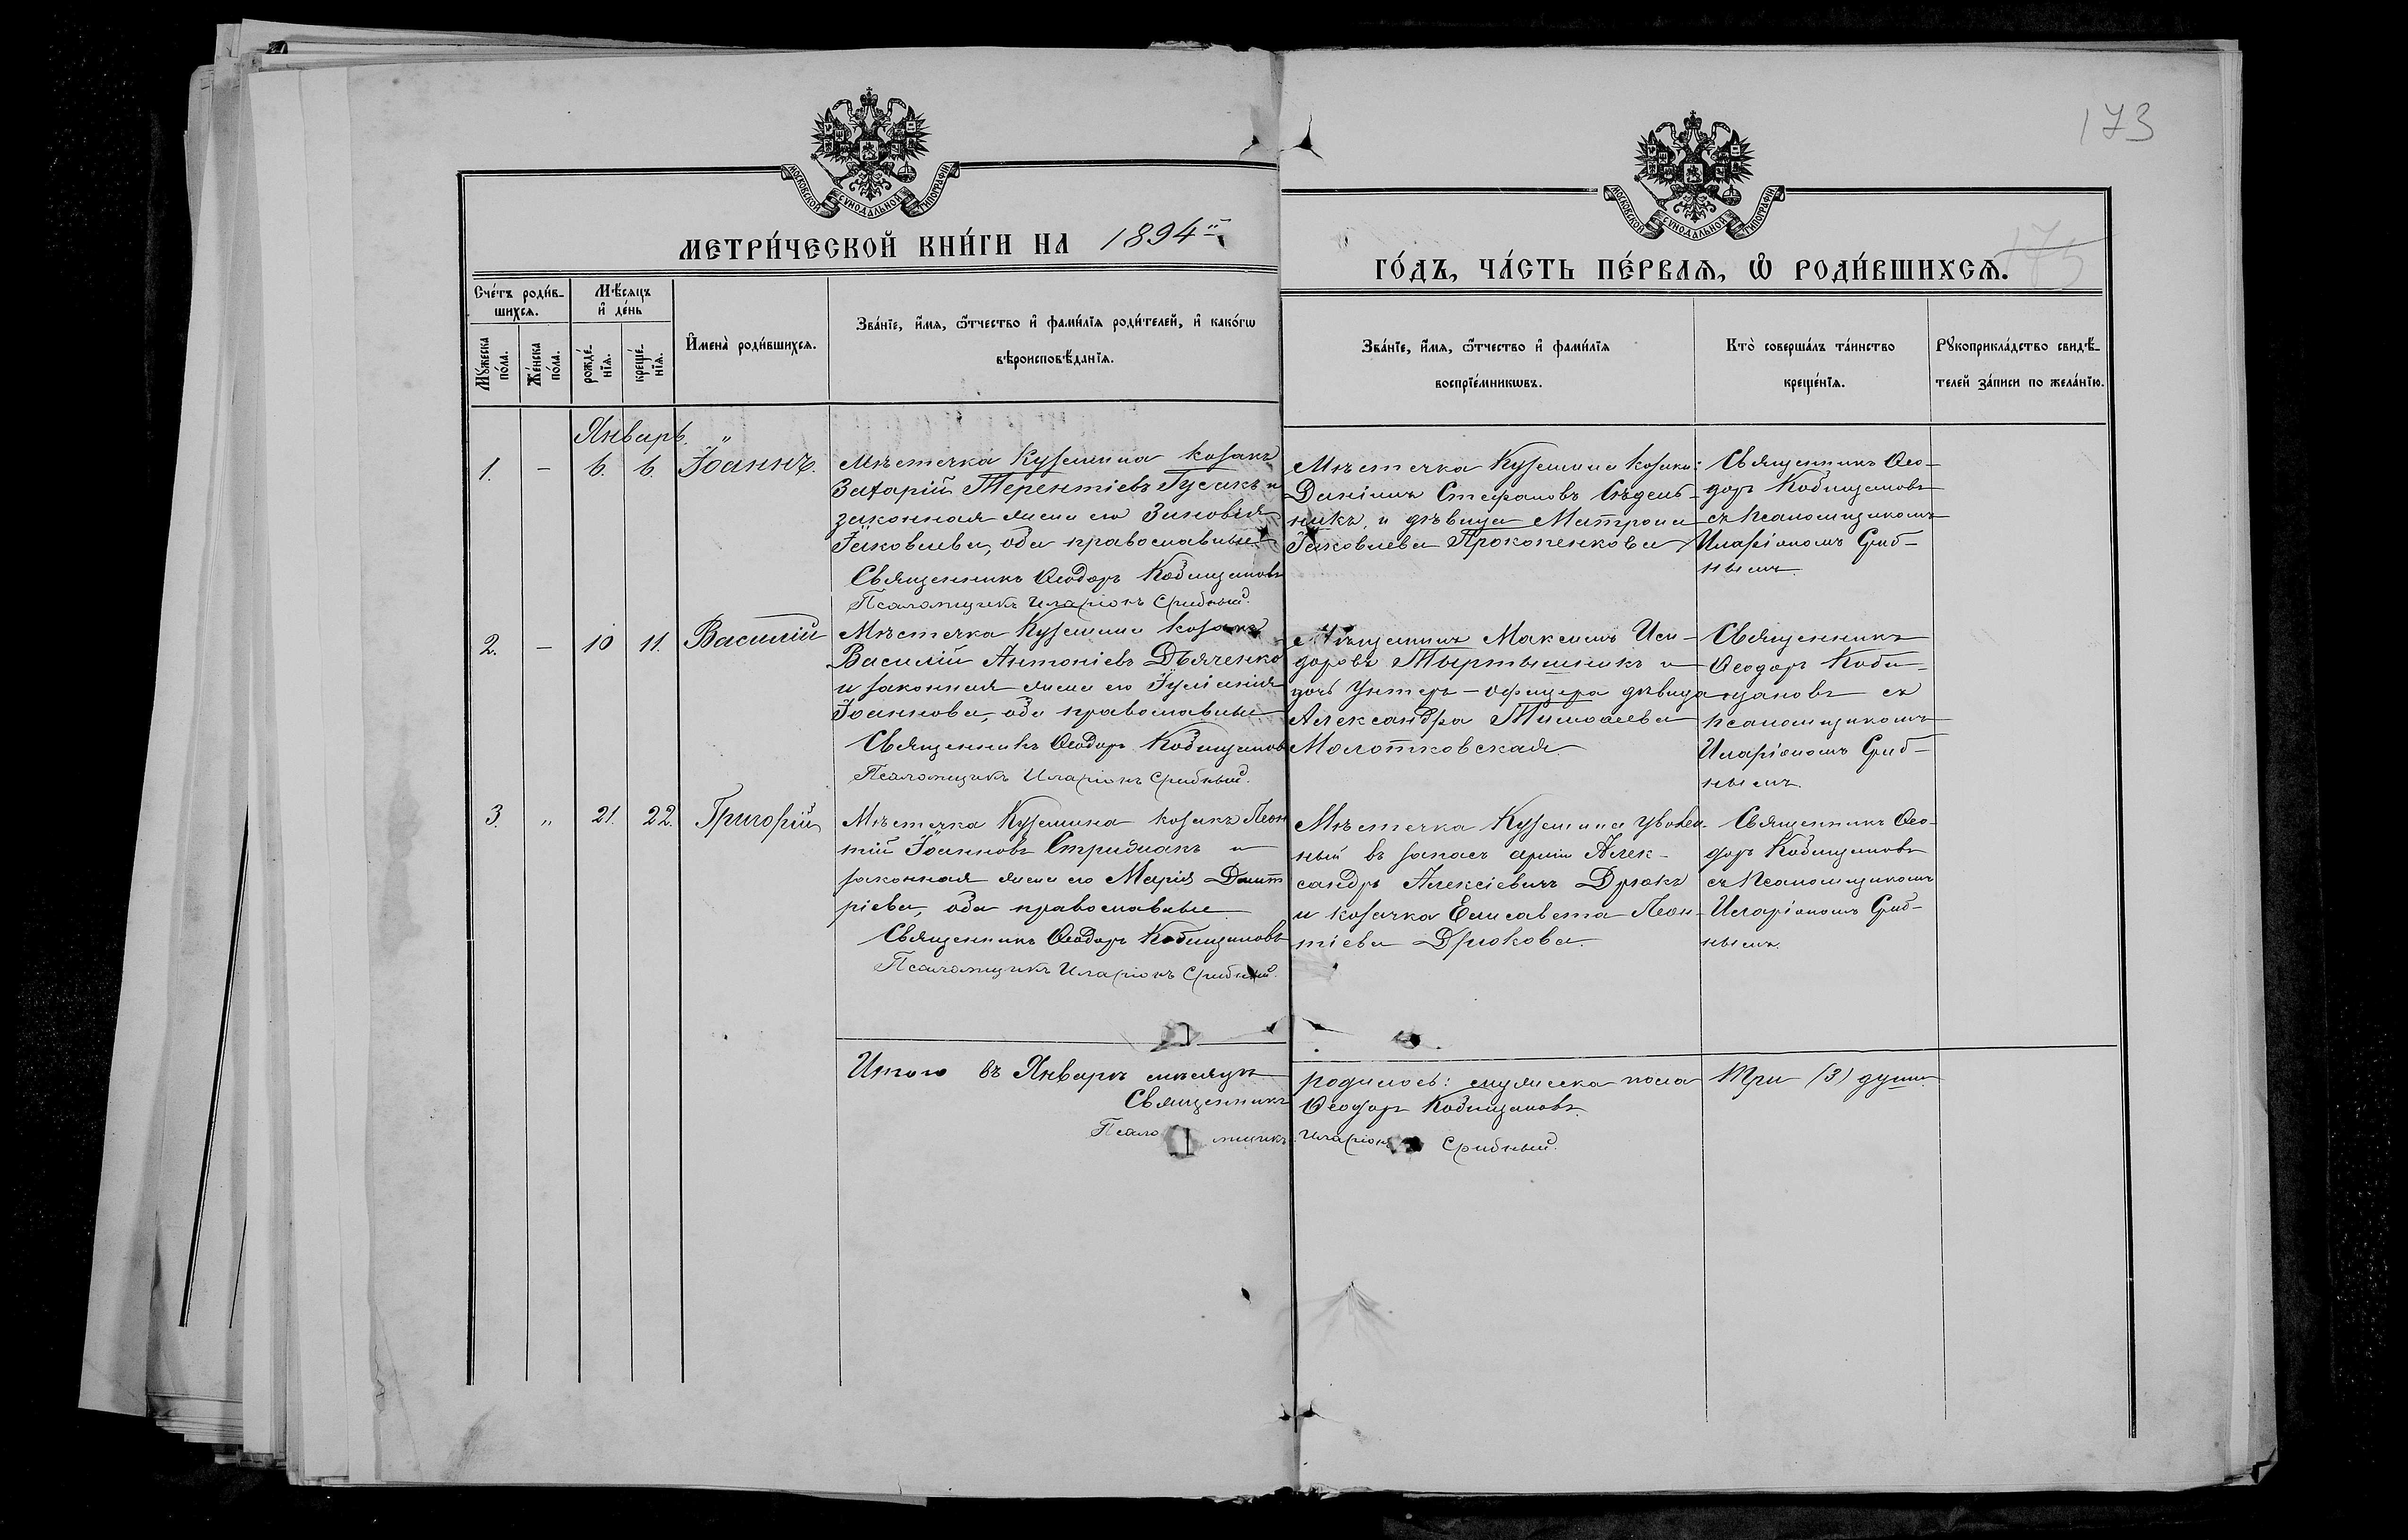 173
МОСКОВСКОЙ СѴНОДАЛЬНОЙ ТИПОГРАФІИ
МОСКОВСКОЙ СѴНОДАЛЬНОЙ ТИПОГРАФІИ
МЕТРИ́ЧЕСКОЙ КНИ́ГИ НА 1894й
ГО́ДЪ, ЧА́СТЬ ПЕ́РВАѦ, Ѡ҆ РОДИ́ВШИХСѦ.
Сче́тъ роди́в-
шихсѧ.
Мѣ́сѧцъ
и҆ де́нь
Мꙋ́жеска по́ла.
Же́нска по́ла.
рожде́-
нїѧ.
креще́-
нїѧ.
И҆мена̀ роди́вшихсѧ.
Зва́нїе, и҆́мѧ, ѻ҆́тчество и҆ фами́лїѧ роди́телей, и҆ како́гѡ
вѣроисповѣ́данїѧ.
Зва́нїе, и҆́мѧ, ѻ҆́тчество и҆ фами́лїѧ
воспрїе́мникѡвъ.
Кто̀ соверша́лъ та́инство
креще́нїѧ.
Рꙋкоприкла́дство свидѣ́-
телей за́писи по жела́нїю.
Январь.
1. — 6. 6. Іоаннъ.
Мѣстечка Куземина козакъ
Захарій Терентіевъ Гусакъ и
законная жена его Зиновія
Іаковлева, оба православные
Священникъ Ѳеодоръ Кобищановъ
Псаломщикъ Иларіонъ Срибный.
Мѣстечка Куземина козаки:
Даніилъ Стефановъ Сѣдель-
никъ, и дѣвица Матрона
Іаковлева Прокопенкова
Священникъ Ѳео-
доръ Кобищановъ
съ псаломщикомъ
Иларіономъ Сриб-
нымъ.
2. — 10 11. Василій
Мѣстечка Куземина козакъ
Василій Антоніевъ Дьяченко
и законная жена его Іуліанія
Іоаннова, оба православные
Священникъ Ѳеодоръ Кобищановъ
Псаломщикъ Иларіонъ Срибный.
Мѣщанинъ Максимъ Иси-
доровъ Мыртышникъ и
дочь унтеръ-офицера дѣвица
Александра Тимоѳеева
Молотковская
Священникъ
Ѳеодоръ Коби-
щановъ съ
псаломщикомъ
Иларіономъ Сриб-
нымъ.
3. „ 21. 22. Григорій
Мѣстечка Куземина козакъ Леон
тій Іоанновъ Стрижакъ и
законная жена его Марія Димит
ріева, оба православные
Священникъ Ѳеодоръ Кобищановъ
Псаломщикъ Иларіонъ Срибный.
Мѣстечка Куземина уволен-
ный въ запасъ арміи Алек-
сандръ Алексіевичъ Дрюкъ
и козачка Елисавета Леон-
тіева Дрюкова.
Священникъ Ѳео-
доръ Кобищановъ
съ псаломщикомъ
Иларіономъ Сриб-
нымъ.
Итого въ Январѣ мѣсяцѣ родилось: мужеска пола Три (3) души.
Священникъ Ѳеодоръ Кобищановъ.
Псаломщикъ Иларіонъ Срибный.